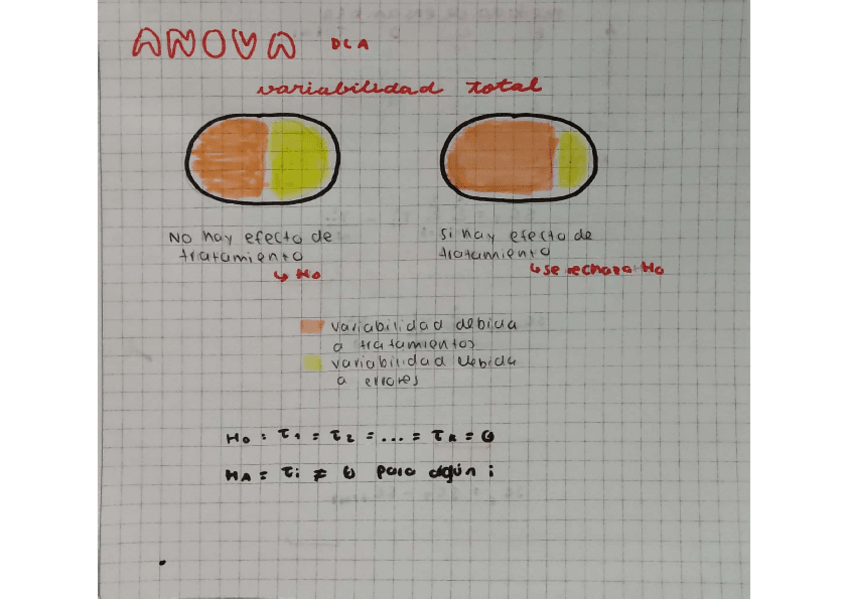 ANOVA DCA
variabilidad total
No hay efecto de
tratamiento
↳ Ho
Si hay efecto de
tratamiento
↳ se rechaza Ho
variabilidad debida
a tratamientos
variabilidad debida
a errores
Ho : τ1 = τ2 = ... = τk = 0
HA = τi ≠ 0 para algún i